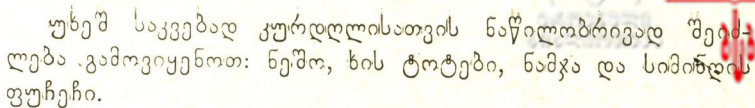 უხეშ საკვებად კურდღლისათვის ნაწილობრივად შეიძ-
ლება გამოვიყენოთ: ნეშო, ხის ტოტები, ნამჯა და სიმინდის
ფუჩეჩი.